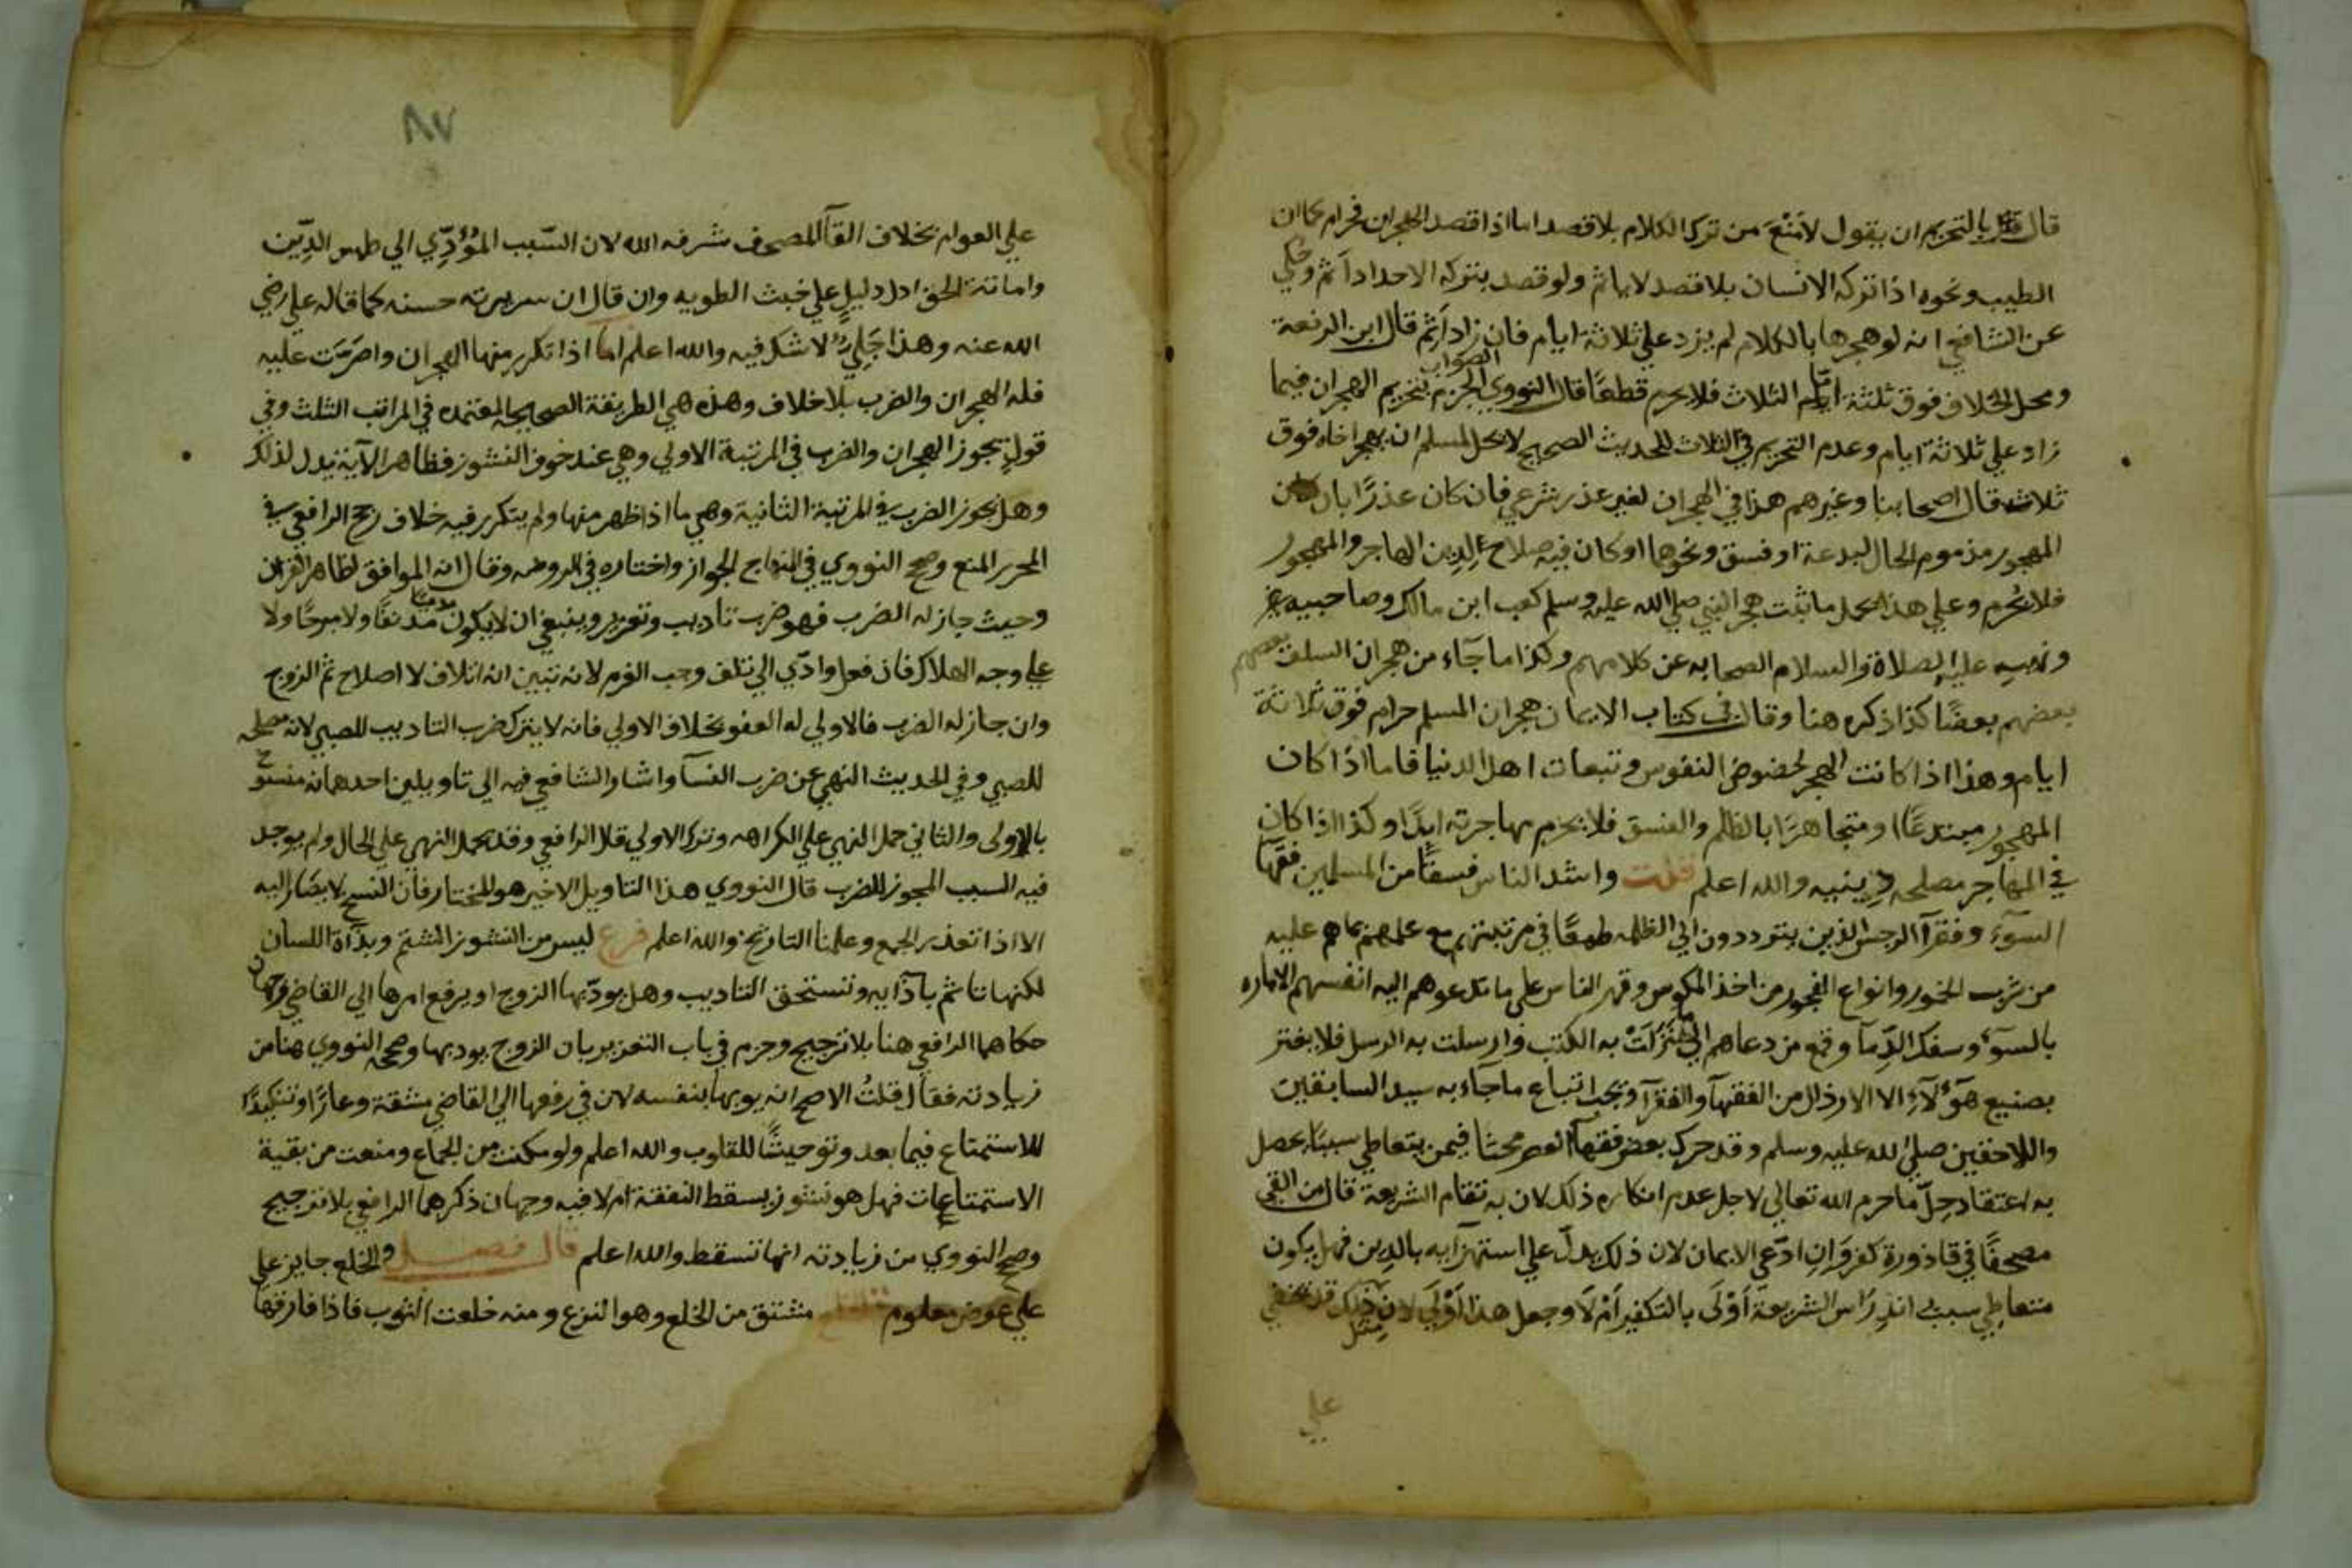 قال بالتحريم ان يقول لا منع من ترك الكلام بلا قصد اما اذا قصد الهجران فحرام كما ان
الطيب ونحوه اذا تركه الانسان بلا قصد لا ياثم ولو قصد بتركه الاحداد اثم وحكي
عن الشافعي انه لو هجرها بالكلام لم يزد علي ثلاثة ايام فان زاد اثم قال ابن الرفعة
ومحل الخلاف فوق ثلثة ايام اما الثلاث فلا يحرم قطعًا قال النووي الصواب الجزم بتحريم الهجران فيما
زاد علي ثلاثة ايام وعدم التحريم في الثلاث للحديث الصحيح لا يحل لمسلم ان يهجر اخاه فوق
ثلاث قال اصحابنا وغيرهم هذا في الهجران لغير عذر شرعي فان كان عذرًا بان كان
المهجور مذموم الحال لبدعة او فسق ونحوهما او كان فيه صلاح لدين الهاجر والمهجور
فلا يحرم وعلي هذا يحمل ما ثبت هجر النبي صلي الله عليه وسلم كعب ابن مالك وصاحبيه
ونهيه عليه الصلاة والسلام الصحابه عن كلامهم وكذا ما جآء من هجران السلف بعضهم
بعضهم بعضًا كذا ذكره هنا وقال في كتاب الايمان هجران المسلم حرام فوق ثلاثة
ايام وهذا اذا كانت الهجر لحضوض النفوس وتبعات اهل الدنيا فاما اذا كان
المهجور مبتدعًا او متجاهرًا بالظلم والفسق فلا يحرم مهاجرته ابدًا وكذا اذا كان
في المهاجر مصلحه دينيه والله اعلم قلت واشد الناس فسقًا من المسلمين فقهآ
السوء وفقرآ الرجس الذين يترددون الي الظلمه طمعًا في مرتبتهم مع علمهم بما هم عليه
من شرب الخمور وانواع الفجور من اخذ المكوس وقهر الناس علي ما تدعوهم اليه انفسهم الاماره
بالسوء وسفك الدمآ وقمع من دعاهم الي ما نزلت به الكتب وارسلت به الرسل فلا يغتر
بصنيع هؤلاء الا الارذال من الفقهآ والفقرآ ويجب اتباع ما جآء به سيد السابقين
واللاحقين صلي الله عليه وسلم وقد حرك بعض فقهآ العصر بحثا فيمن يتعاطي سببًا يحصل
به اعتقاد حل ما حرم الله تعالي لاجل عدم انكاره ذلك لان به تقام الشريعة قال من القي
مصحفًا في قاذورة كفر وان ادعي الايمان لان ذلك يدل علي استهزآيه بالدين فهل يكون
متعاطي سبب اندراس الشريعة اولى بالتكفير ام لا وجعل هذا اولي لان مثل ذلك قد يخفي
علي
٨٧
علي العوام بخلاف القآ المصحف شرفه الله لان السبب المؤدي الي طمس الدين
واماتة الحق ادل دليل علي خبث الطويه وان قال ان سريرته حسنه كما قاله علي رضي
الله عنه وهذا جلي لا شك فيه والله اعلم اما اذا تكرر منها الهجران واصرت عليه
فله الهجران والضرب بلا خلاف وهذه هي الطريقة الصحيحة المعتمده في المراتب الثلث وفي
قول يجوز الهجران والضرب في المرتبة الاولي وهي عند خوف النشوز فظاهر الآية يدل لذلك
وهل يجوز الضرب في المرتبة الثانية وهي ما اذا ظهر منها ولم يتكرر فيه خلاف رجح الرافعي في
المحرر المنع وصحح النووي في المنهاج الجواز واختاره في الروضه وقال انه الموافق لظاهر القران
وحيث جاز له الضرب فهو ضرب تاديب وتعزير وينبغي ان لا يكون مدنفًا ولا مبرحًا ولا
علي وجه الهلاك فان فعل وادي الي تلف وجب الغرم لانه تبين انه اتلاف لا اصلاح ثم الزوج
وان جاز له الضرب فالاولي له العفو بخلاف الاولي فانه لا يترك ضرب التاديب للصبي لانه مصلحه
للصبي وفي الحديث النهي عن ضرب النسآ واشار الشافعي فيه الي تاويلين احدهما انه منسوخ
بالاولي والثاني حمل النهي علي الكراهه وترك الاولي قال الرافعي وقد يحمل النهي علي الحال ولم يوجد
فيه السبب المجوز للضرب قال النووي هذا التاويل الاخير هو المختار فان النسخ لا يصار اليه
الا اذا تعذر الجمع وعلمنا التاريخ والله اعلم فرع ليس من النشوز الشتم وبذآة اللسان
لكنها تاثم بآذآيه وتستحق التاديب وهل يودبها الزوج او يرفع امرها الي القاضي وجهان
حكاهما الرافعي هنا بلا ترجيح وجزم في باب التعزير بان الزوج يودبها وصحح النووي هنا من
زيادته فقال قلت الاصح انه يودبها بنفسه لان في رفعها الي القاضي مشقة وعارًا وتنكيدًا
للاستمتاع فيما بعد وتوحيشًا للقلوب والله اعلم ولو مكنت من الجماع ومنعت من بقية
الاستمتاعات فهل هو نشوز يسقط النفقة ام لا فيه وجهان ذكرهما الرافعي بلا ترجيح
وصحح النووي من زيادته انها تسقط والله اعلم قال فصل والخلع جايز علي
علي عوض معلوم مشتق من الخلع وهو النزع ومنه خلعت الثوب فاذا فارقها